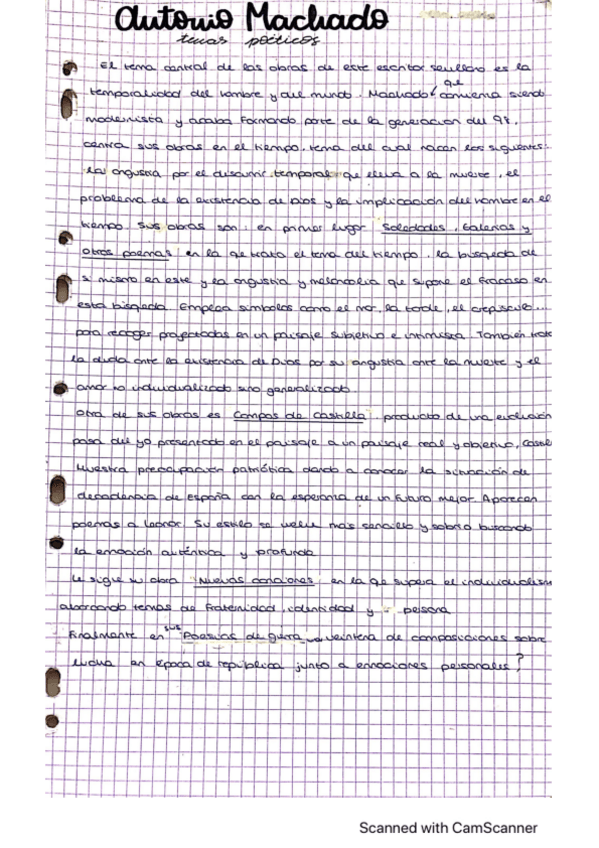 Antonio Machado
temas poéticos
El tema central de las obras de este escritor sevillano es la
que
temporalidad del hombre y del mundo. Machado comienza siendo
modernista y acaba formando parte de la generación del 98,
centra sus obras en el tiempo, tema del cual nacen los siguientes:
la angustia por el discurrir temporal que lleva a la muerte, el
problema de la existencia de Dios y la implicación del hombre en el
tiempo. Sus obras son: en primer lugar Soledades, Galerías y
otros poemas en la qe trata el tema del tiempo, la búsqeda de
sí mismo en este y la angustia y melancolía que supone el fracaso en
esta búsqeda. Emplea símbolos como el mar, la tarde, el crepúsculo...
para recoger proyectadas en un paisaje subjetivo e intimista. También trata
la duda ante la existencia de Dios por su angustia ante la muerte y el
amor no individualizado sino generalizado.
Otra de sus obras es "Campos de Castilla", producto de una evolución
pasa del yo presentado en el paisaje a un paisaje real y objetivo, Castilla
Muestra preocupación patriótica dando a conocer la situación de
decadencia de España con la esperanza de un futuro mejor. Aparecen
poemas a Leonor. Su estilo se vuelve más sencillo y sobrio buscando
la emoción auténtica y profunda.
Le sigue su obra "Nuevas canciones" en la qe supera el individualismo
abarcando temas de fraternidad, identidad y persona
Finalmente en sus "Poesías de guerra" veintena de composiciones sobre
lucha en época de república junto a emociones personales?
Scanned with CamScanner